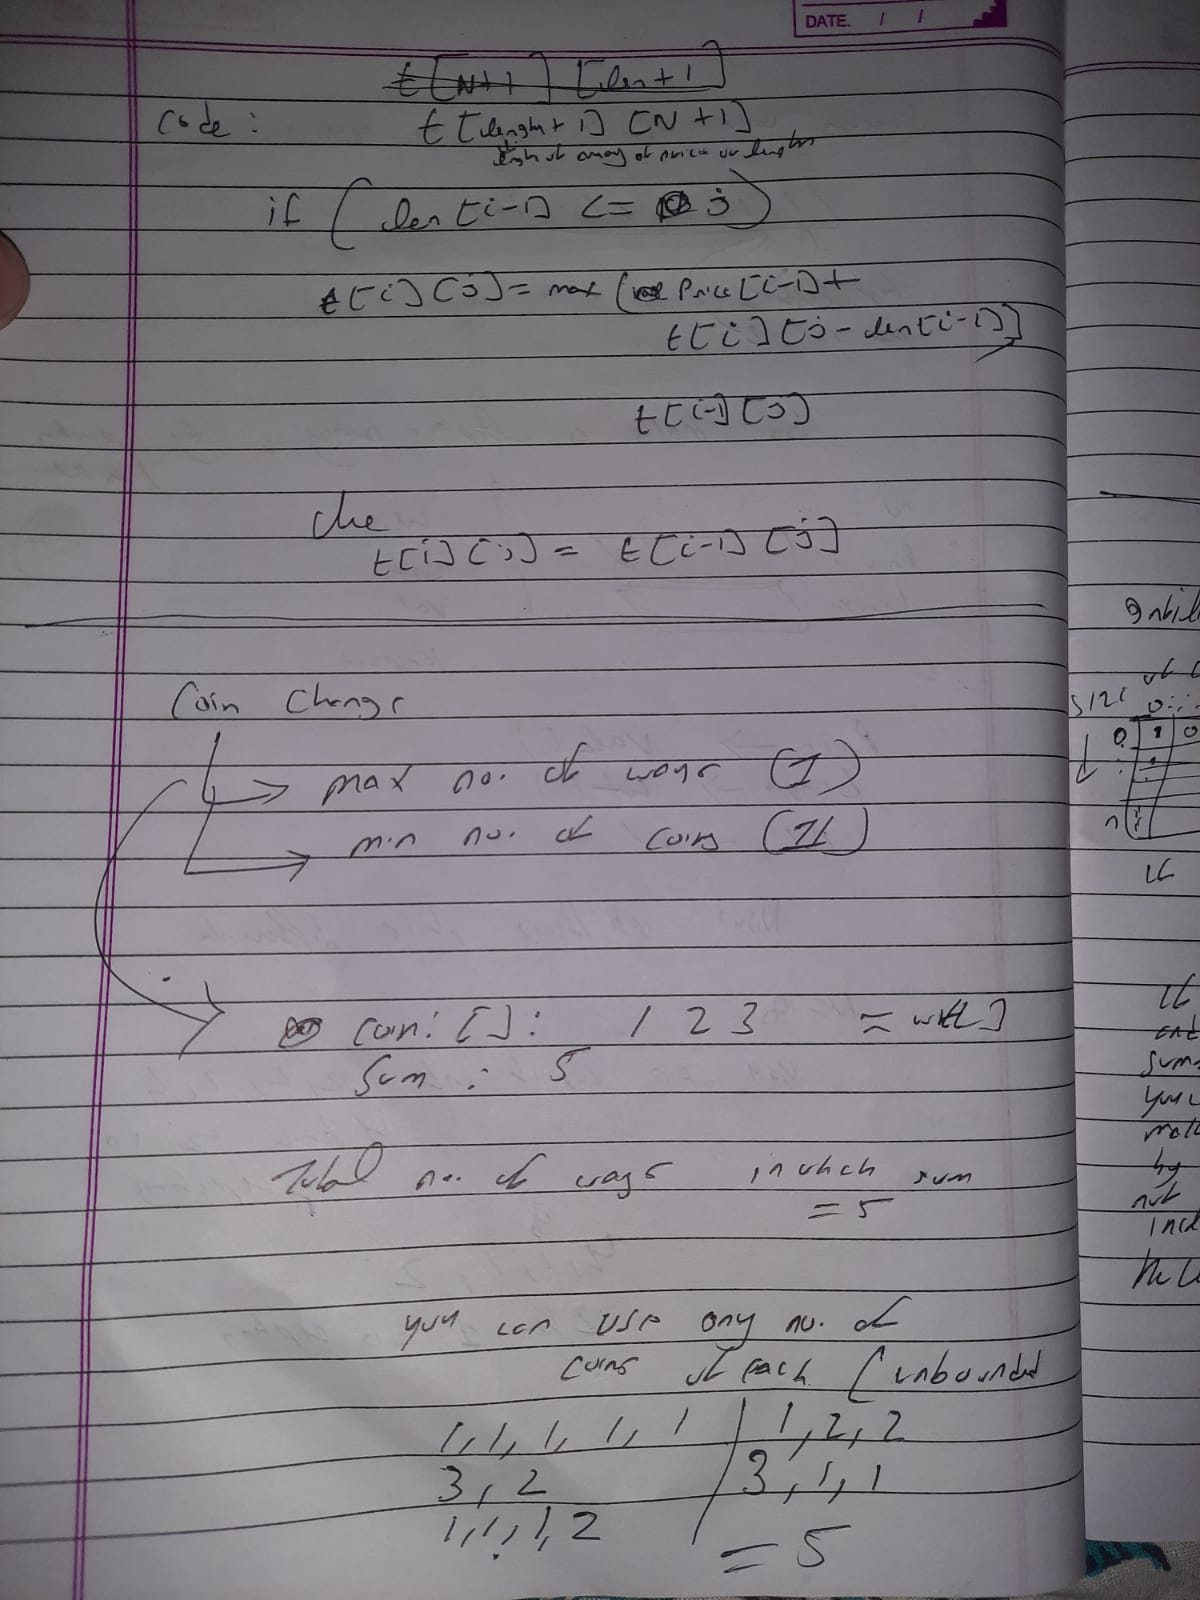 DATE. / /
t[N+1] [len+1]
Code: t[length+1] [N+1]
length of array of price or length
if (len[i-1] <= j)
t[i][j] = max (Price[i-1]+
t[i][j-len[i-1]]
t[i-1][j]
else
t[i][j] = t[i-1][j]
Coin Change
max no. of ways (I)
min no. of coins (II)
coin: []: 1 2 3 = wt[]
Sum : 5
Total no. of ways in which sum
= 5
you can use any no. of
coins of each (unbounded
1, 1, 1, 1, 1 | 1, 2, 2
3, 2 | 3, 1, 1
1, 1, 1, 2
= 5
size
0
n
If
If
sum
by
not